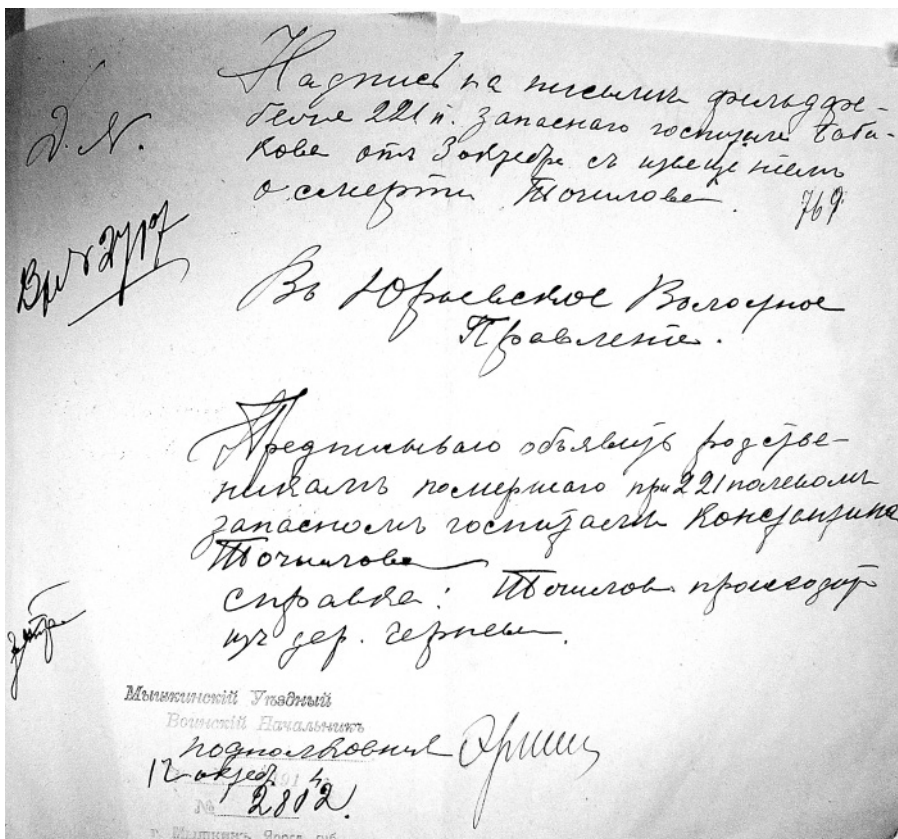 Надпись на письмѣ фельдфе-
беля 221 п. запаснаго госпиталя Баба-
кова отъ 3 октября съ извещеніемъ
о смерти Точилова.
769
Д. N.
Въ Юрьевское Волостное
Правленіе.
Предписываю объявить родстве-
никамъ помершаго при 221 полевомъ
запасномъ госпиталѣ Константина
Точилова
справка: Точиловъ происходитъ
изъ дер.
Мышкинскій Уѣздный
Воинскій Начальникъ
подполковникъ
12 октяб. 1914
№ 2802
г. Мышкинъ, Яросл. губ.